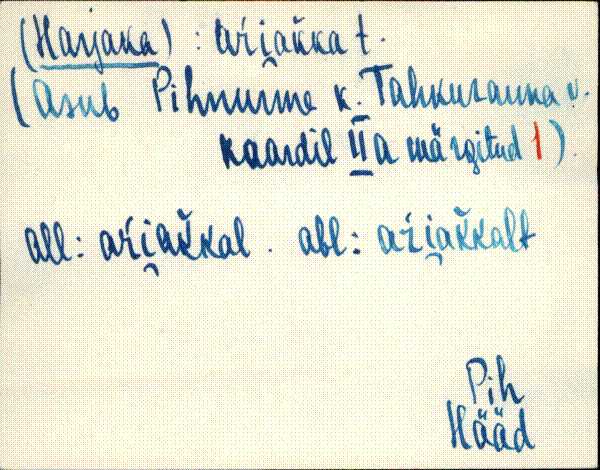 (Harjaka) : aŕi̯ak̆ka t.
(Asub Pihnurme k. Tahkuranna v.
kaardil IIa märgitud 1).
all: aŕi̯ak̆kal . abl: aŕi̯ak̆kalt
Pih
Hääd